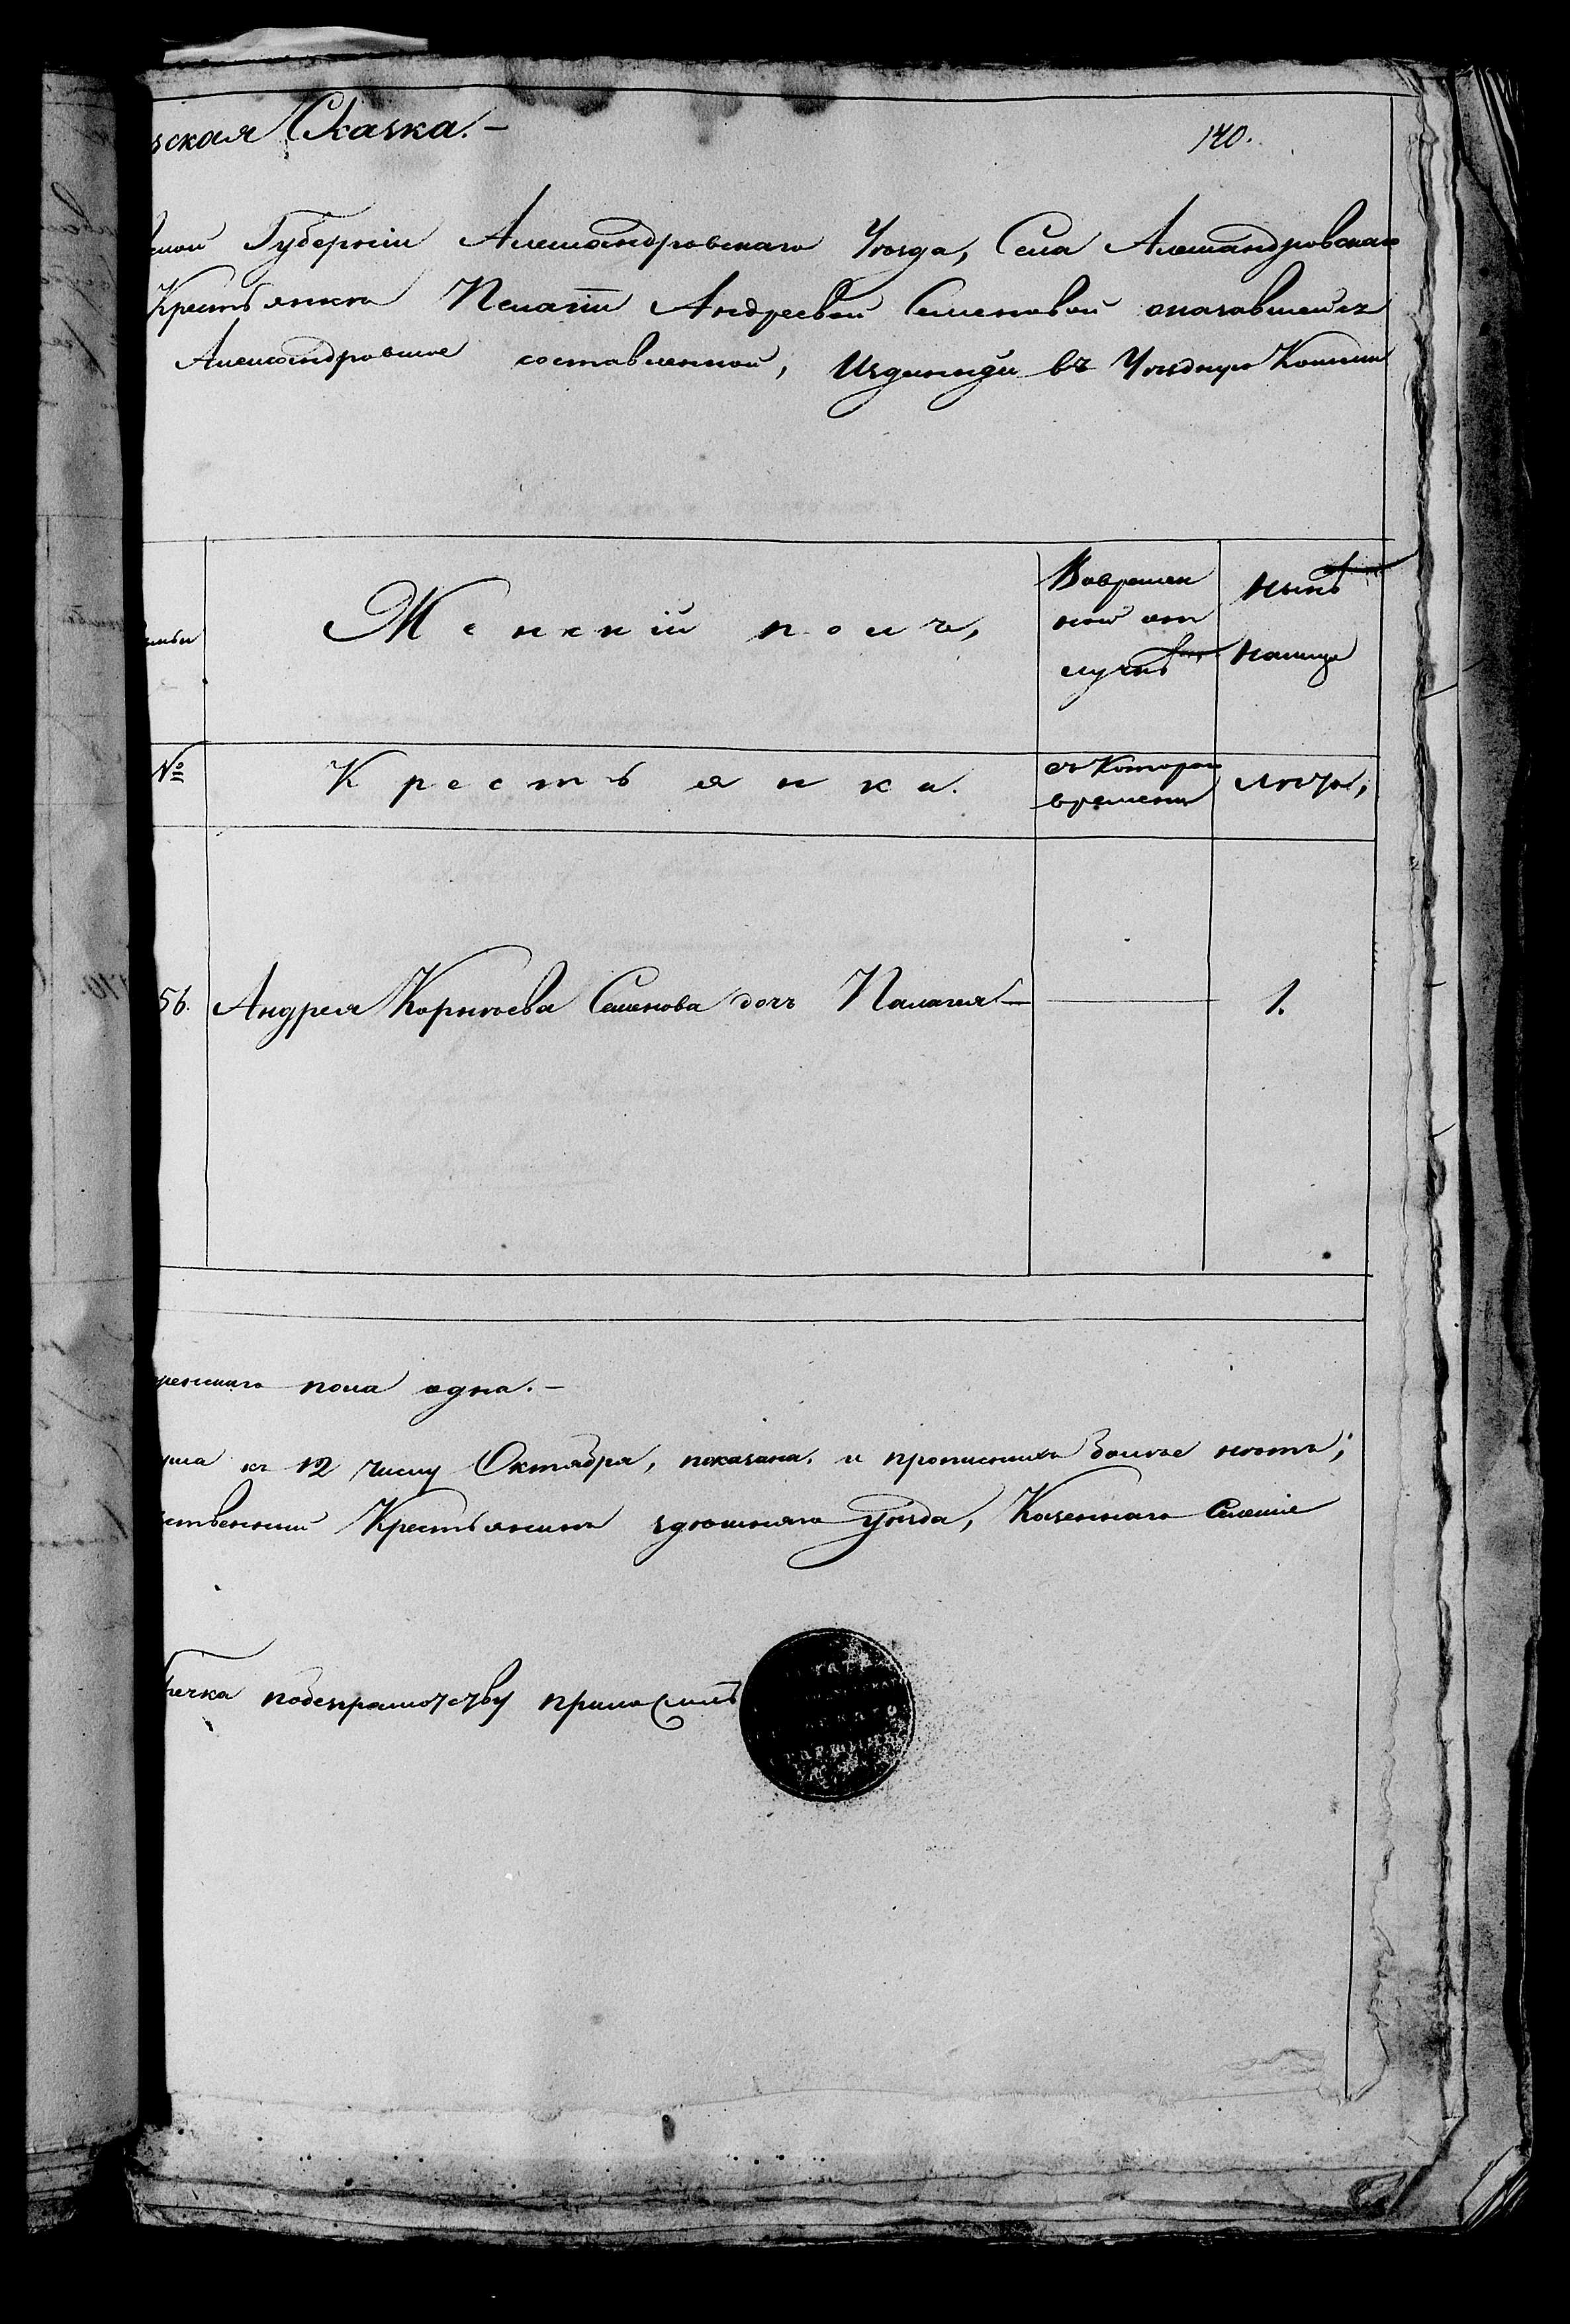 ская Сказка.-
140.
ской Губерніи Александровскаго Уѣзда, Села Александровскаго
Крестьянки Пелагіи Андреевой Семеновой оказавшейся
Александровское составленной,
въ Уѣздную Комми
Женскій полъ,
Вовремен
ной от
лучкѣ
Нынѣ
налицо
№
Крестьянка.
съ которого
времени
Лѣта,
56. Андрея Корнѣева Семенова дочь Палагея —
—
1.
женскаго пола одна.-
къ 12 числу Октября, показана, и прописныхъ болѣе нѣтъ;
ственный Крестьянинъ здѣшняго Уѣзда, Казеннаго Селенія